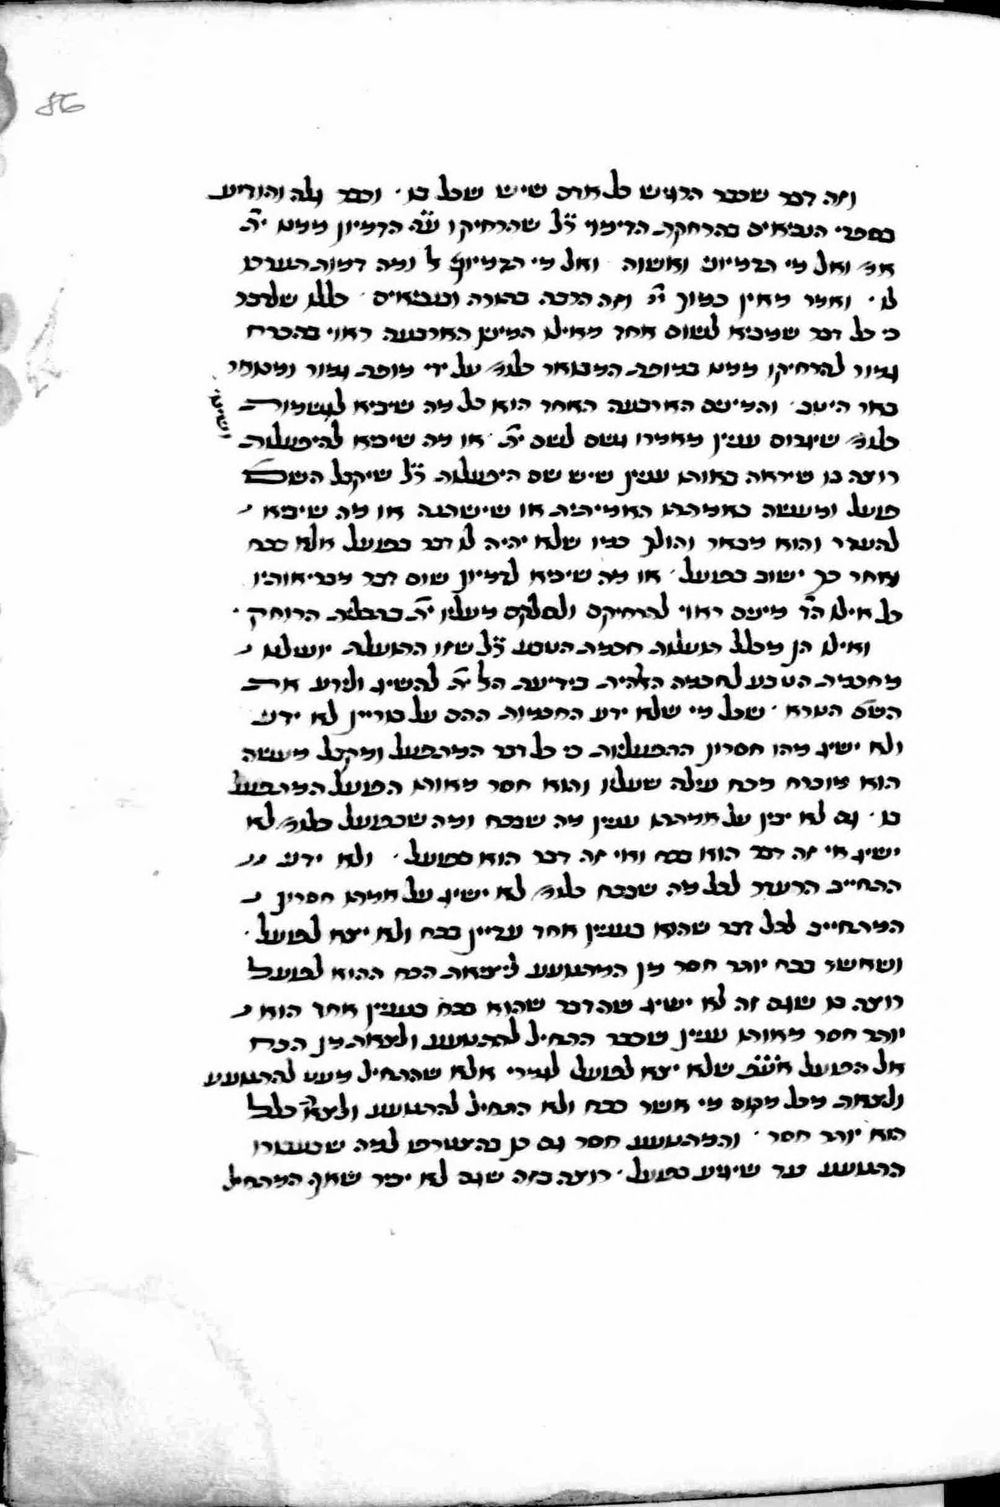 86
וזה דבר שכבר הרגיש כל אדם שיש שכל בו · וכבר גלה והודיע
בספרי הנביאים בהרחקת הדימוי ר״ל שהרחיקו ע״ה הדמיון ממנו ית׳
אמ׳ ואל מי תדמיוני ואשוה ואל מי תדמיון אל ומה דמות תערכו
לו · ואמר מאין כמוך יי׳ וזה הרבה בתורה ובנביאים · כללו של דבר
כי כל דבר שמביא לשום אחד מאילו המינין הארבעה ראוי בהכרח
גמור להרחיקו ממנו במופת המבואר כלומ׳ על ידי מופת גמור ומבואר
באר היטב · והמינים הארבעה האחד הוא כל מה שיביא לגשמות
כלומ׳ שיגרום עניין מאמרו גשם לשם ית׳ או מה שיביא להיפעלות
רוצה בו שיראה באותו עניין שיש שם היפעלות ר״ל שיקבל השם
פועל ומעשה באמתתו האמיתית או שישתנה או מה שיביא
להעדר והוא מבאר והולך כמו שלא יהיה לו דבר בפועל אלא בכח
ואחר כך ישוב בפועל · או מה שיביא לדמיון שום דבר מבריאותיו
כל אילו הד׳ מינים ראוי להרחיקם ולסלקם מעליו ית׳ בתכלית הרוחק ·
ואילו הן מכלל תועלות חכמת הטבע ר״ל שזו התועלת יועילנו
מחכמת הטבע לחכמה האלהית בידיעת האל ית׳ להשיג ולידע את
השם הנורא · שכל מי שלא ידע החכמות ההם על בוריין לא ידע
ולא ישיג מהו חסרון ההפעלות כי כל דבר המתפעל ומקבל מעשה
הוא מוכרח מכח עילה שעליו והוא חסר מאותו הפועל המתפעל
בו · גם לא יבין על אמתתו עניין מה שבכח ומה שבפועל כלומ׳ לא
ישיג אי זה דבר הוא בכח ואי זה דבר הוא בפועל · ולא ידע
התחייב ההעדר לכל מה שבכח כלומ׳ לא ישיג על אמתו חסרון
המתחייב לכל דבר שהוא בעניין אחד עדיין בכח ולא יצא לפועל ·
ושאשר בכח יותר חסר מן המתנועע ליציאת הכח ההוא לפועל
רוצה בו שגם זה לא ישיג שהדבר שהוא בכח בעניין אחד הוא
יותר חסר מאותו עניין שכבר התחיל להתנועע ולצאת מן הכח
אל הפועל אע״פ שלא יצא לפועל לגמרי אלא שהתחיל מעט להתנועע
ולצאת מכל מקום מי אשר בכח ולא התחיל להתנועע ולצאת כלל
הוא יותר חסר · והמתנועע חסר גם כן בהצטרפו למה שבעבורו
התנועע עד שיגיע בפועל · רוצה בזה שגם לא יכיר שאף המתחיל